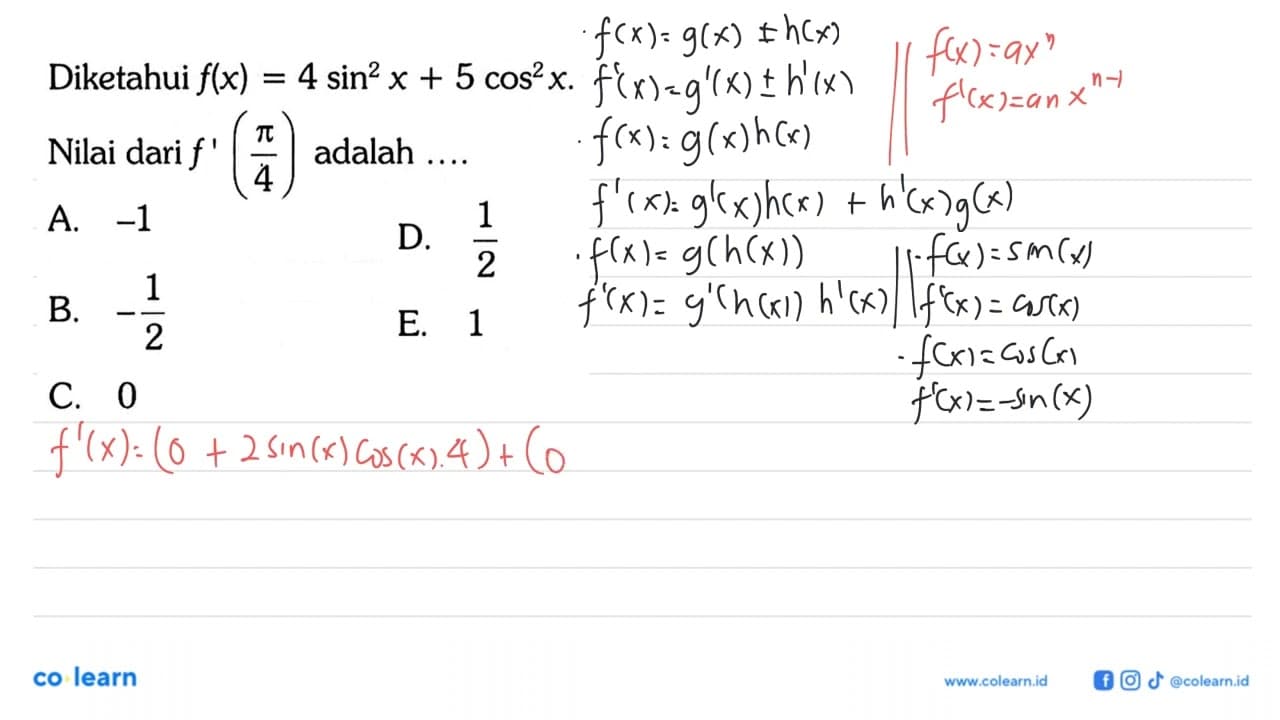 Diketahui f(x) = 4 sin² x + 5 cos² x.
Nilai dari f ' (π/4) adalah ....
A. –1
B. –1/2
C. 0
D. 1/2
E. 1
· f(x) = g(x) ± h(x)
f'(x) = g'(x) ± h'(x)
· f(x) = g(x)h(x)
f'(x) = g'(x)h(x) + h'(x)g(x)
· f(x) = g(h(x))
f'(x) = g'(h(x)) h'(x)
f(x) = axⁿ
f'(x) = an xⁿ⁻¹
· f(x) = sin(x)
f'(x) = cos(x)
· f(x) = cos(x)
f'(x) = -sin(x)
f'(x) = (0 + 2 sin(x) cos(x).4) + (0
co learn
www.colearn.id
@colearn.id